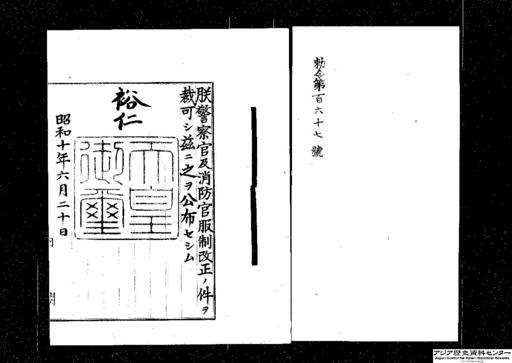 勅令第百六十七號
朕警察官及消防官服制改正ノ件ヲ
裁可シ茲ニ之ヲ公布セシム
裕仁
天皇
御璽
昭和十年六月二十日
アジア歴史資料センター
Japan Center for Asian Historical Records